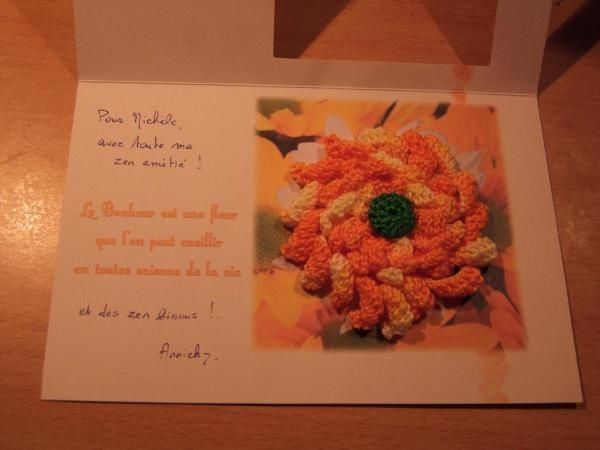 Pour Michèle,
avec toute ma
zen amitié !
Le Bonheur est une fleur
que l'on peut cueillir
en toutes saisons de la vie
et des zen bisous !..
Annick.